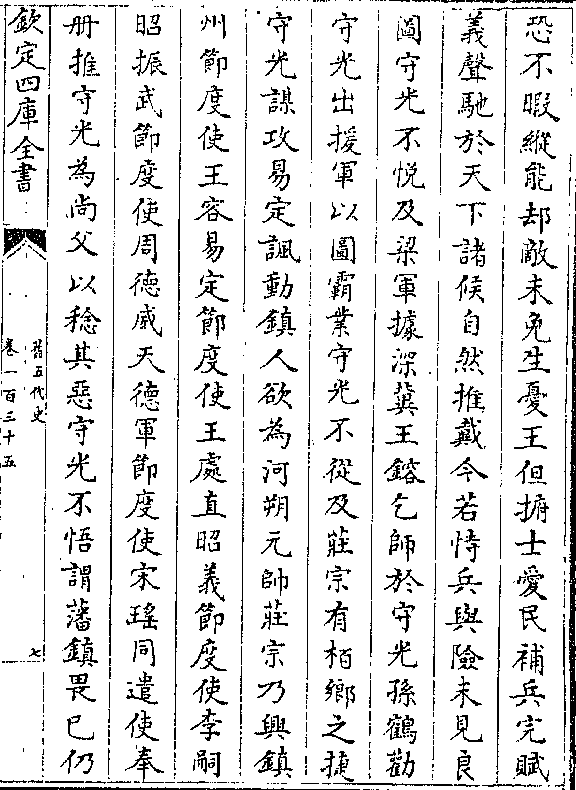 恐不暇縱能却敵未免生憂王但撫士愛民補兵完賦
義聲馳於天下諸侯自然推戴今若恃兵與險未見良
圖守光不悦及梁軍據深冀王鎔乞師於守光孫鶴勸
守光出援軍以圖霸業守光不從及莊宗有栢鄉之捷
守光謀攻易定諷動鎮人欲為河朔元帥莊宗乃與鎮
州節度使王容易定節度使王處直昭義節度使李嗣
昭振武節度使周德威天德軍節度使宋瑤同遣使奉
册推守光為尚父以稔其惡守光不悟謂藩鎮畏已仍
欽定四庫全書
舊五代史
卷一百三十五
七